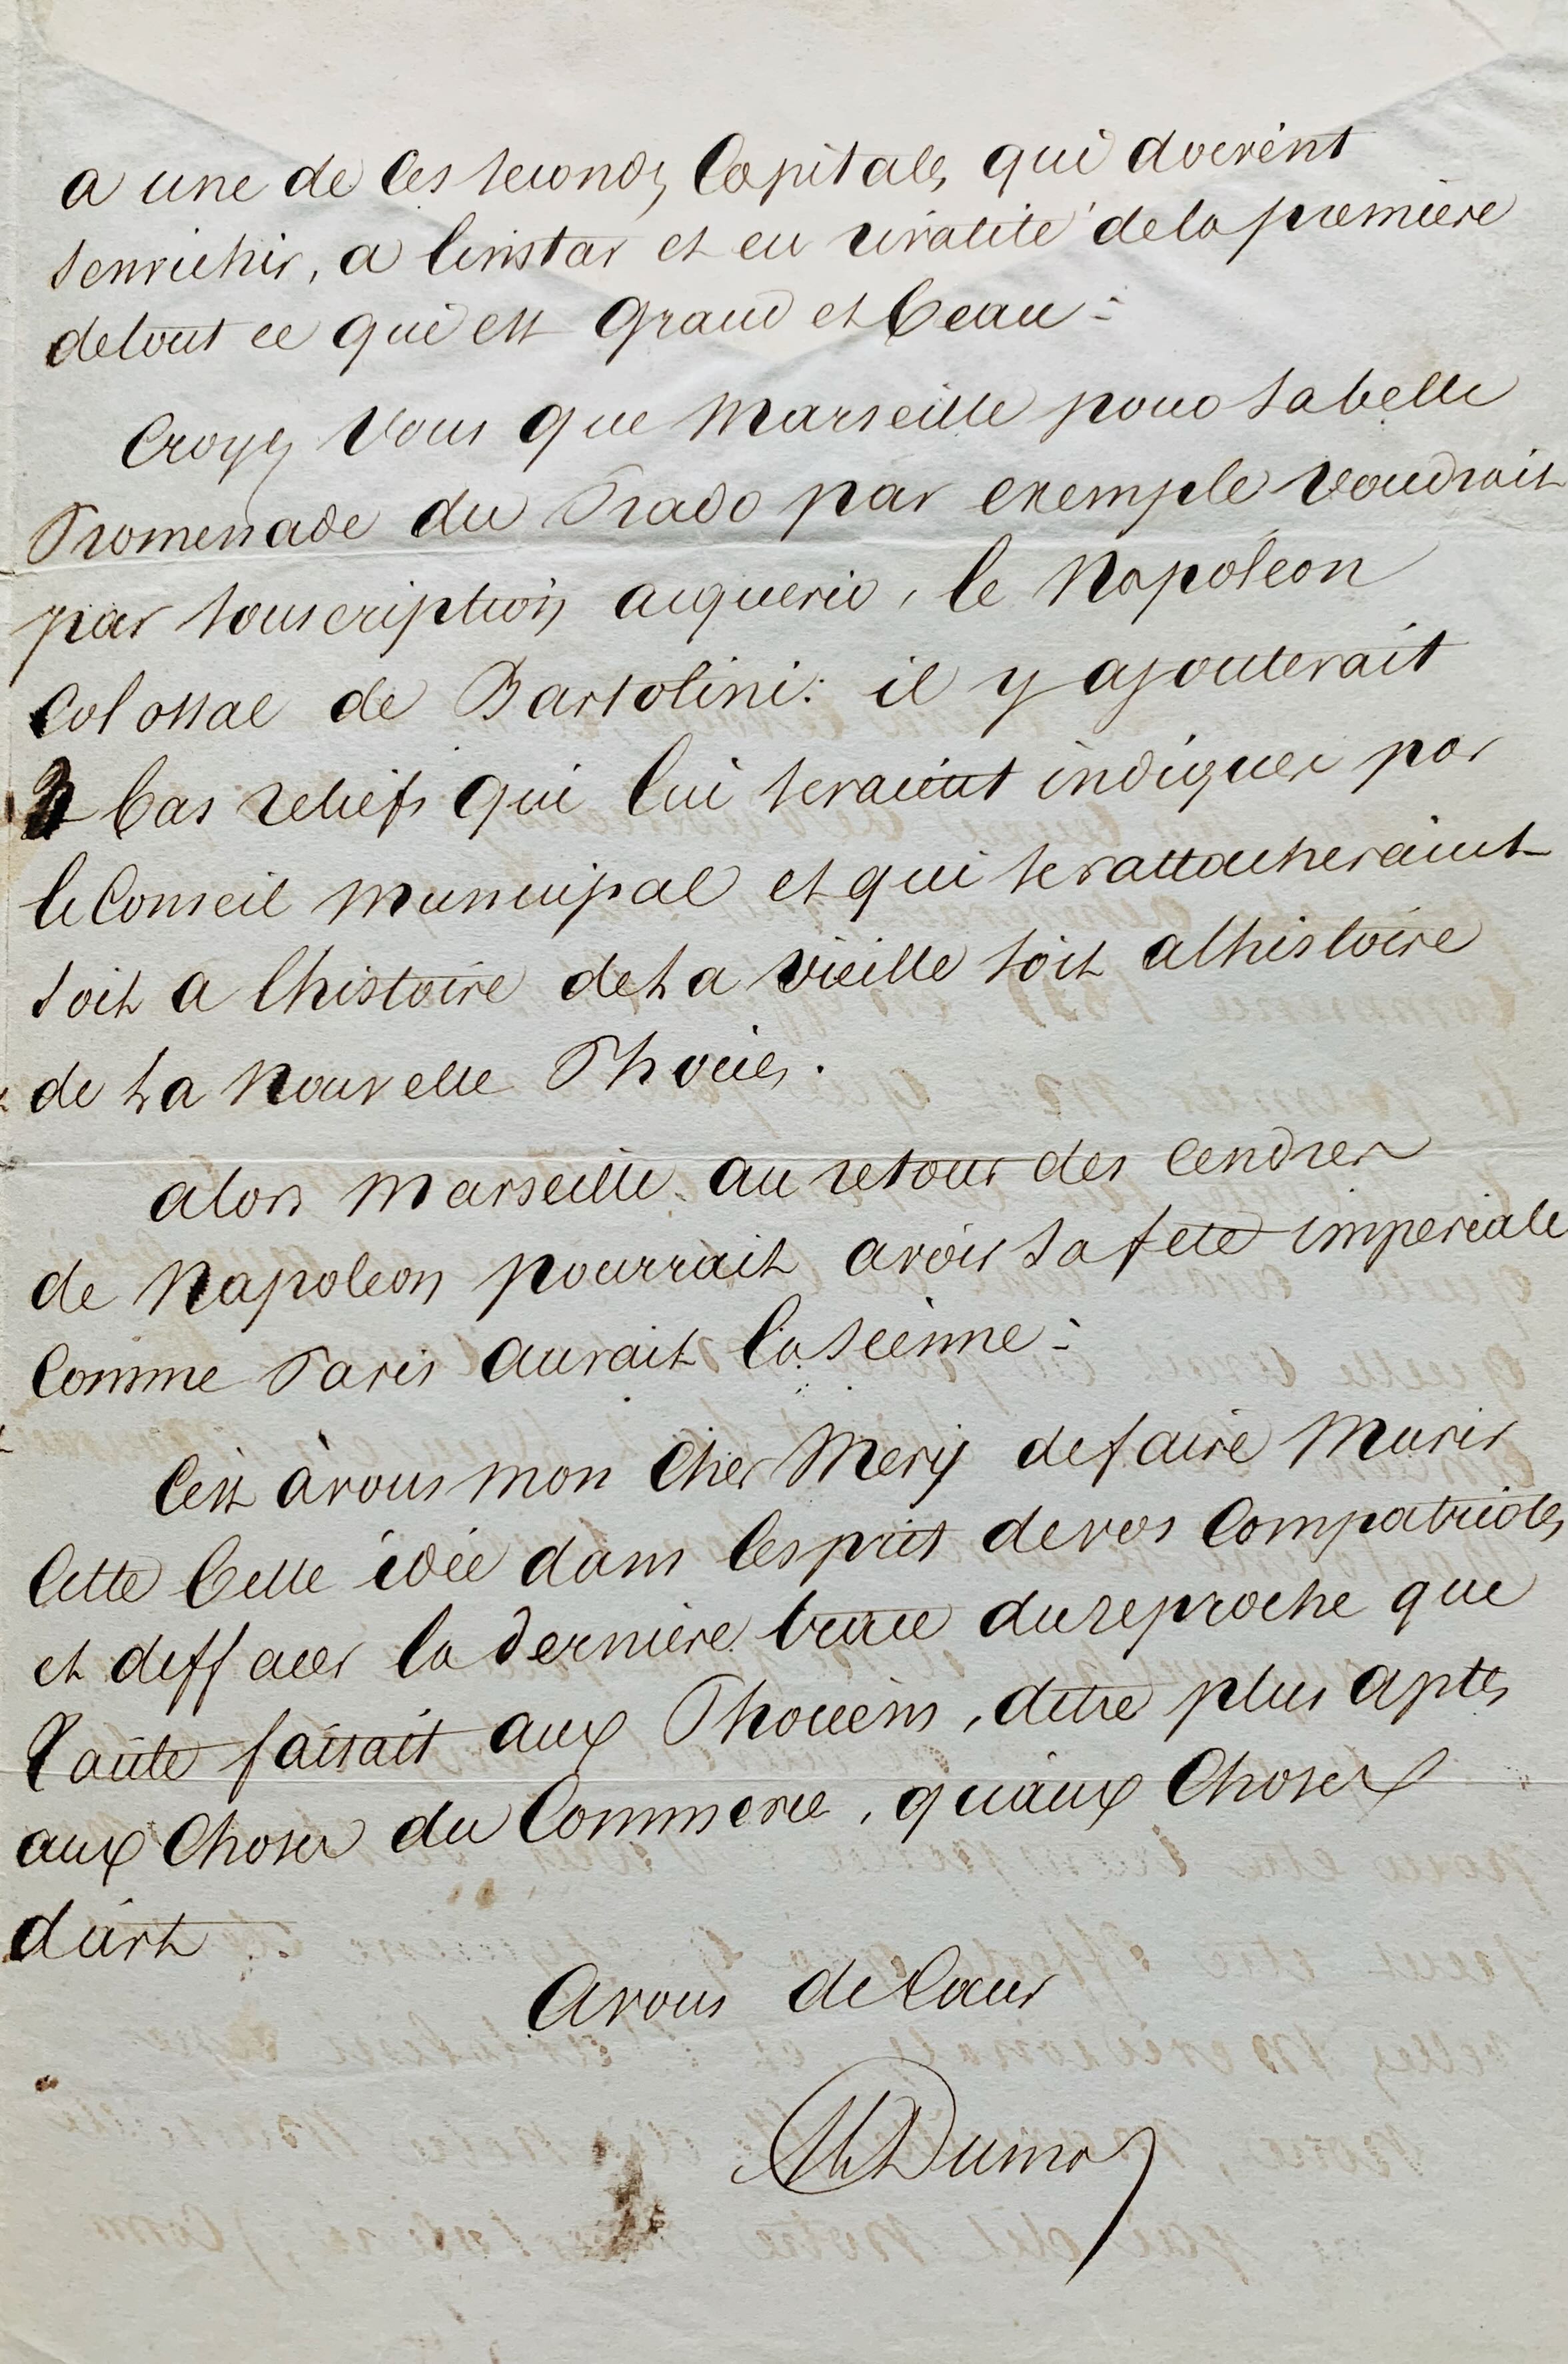 a une de ces secondes Capitales qui doivent
senrichir, a linstar et en rivalité dela première
detout ce qui est Grand et beau -
Croyez Vous que Marseille pour sa belle
Promenade du Prado par exemple voudrait
par souscription acquerir, le Napoléon
Colossal de Bartolini: il y ajouterait
bas reliefs qui lui seraient indiquer par
le Conseil Municipal et qui se rattacheraient
soit a lhistoire de la vieille soit a lhistoire
de la Nouvelle Phocée.
alors Marseille au retour des Cendres
de Napoleon pourrait avoir sa fete imperiale
Comme Paris aurait la sienne -
Cest à vous mon Cher Mery defaire Murir
Cette belle idée dans lesprit devos Compatriotes
et deffacer la dernière trace dureproche que
faisait aux Phocéens, detre plus aptes
aux Choses du Commerce, quaux Choses
dart
Avous de Cœur
Al Dumas